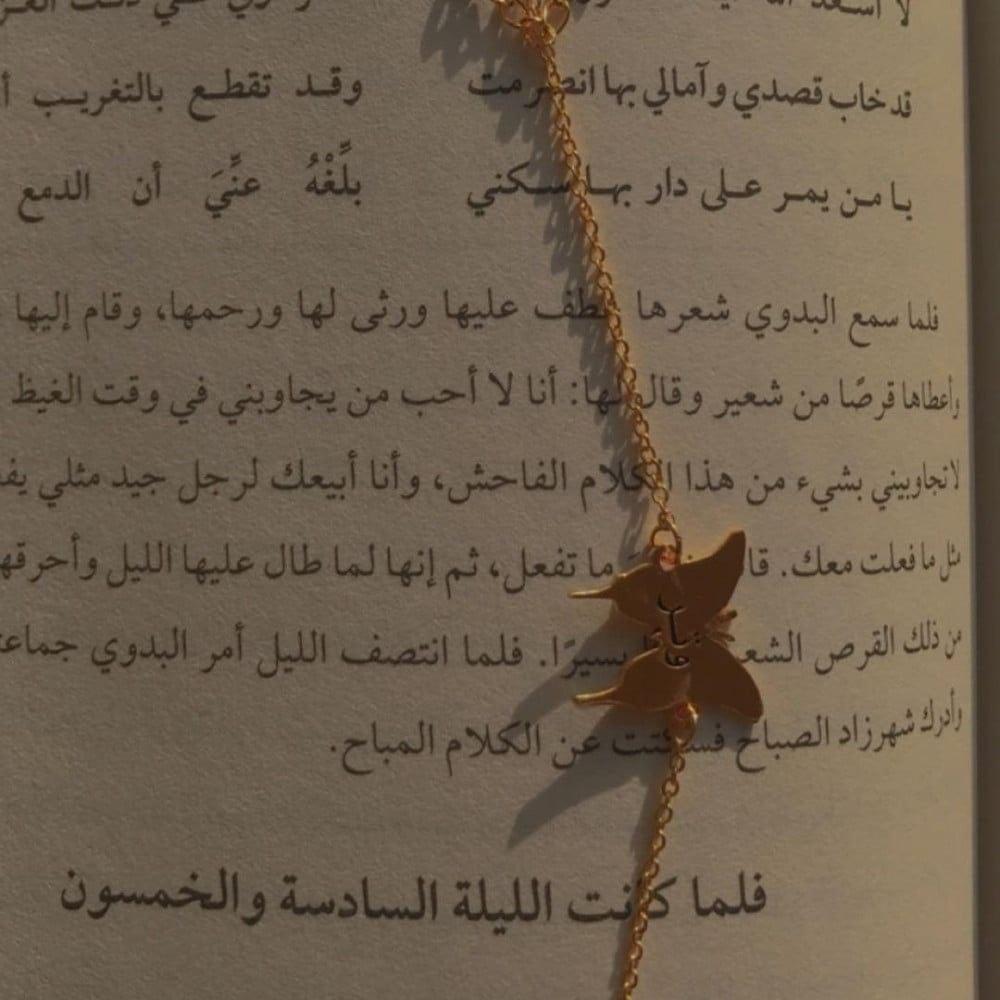 لا أسعد الله
قد خاب قصدي وآمالي بها انصرمت وقد تقطع بالتغريب
يا من يمر على دار بها سكني بلِّغْهُ عنِّيَ أن الدمع
فلما سمع البدوي شعرها عطف عليها ورثى لها ورحمها، وقام إليها
وأعطاها قرصًا من شعير وقال لها: أنا لا أحب من يجاوبني في وقت الغيظ
لا تجاوبيني بشيء من هذا الكلام الفاحش، وأنا أبيعك لرجل جيد مثلي
مثل ما فعلت معك. ما تفعل، ثم إنها لما طال عليها الليل وأحرقها
من ذلك القرص يسيرًا. فلما انتصف الليل أمر البدوي
وأدرك شهرزاد الصباح فسكتت عن الكلام المباح.
فلما كانت الليلة السادسة والخمسون